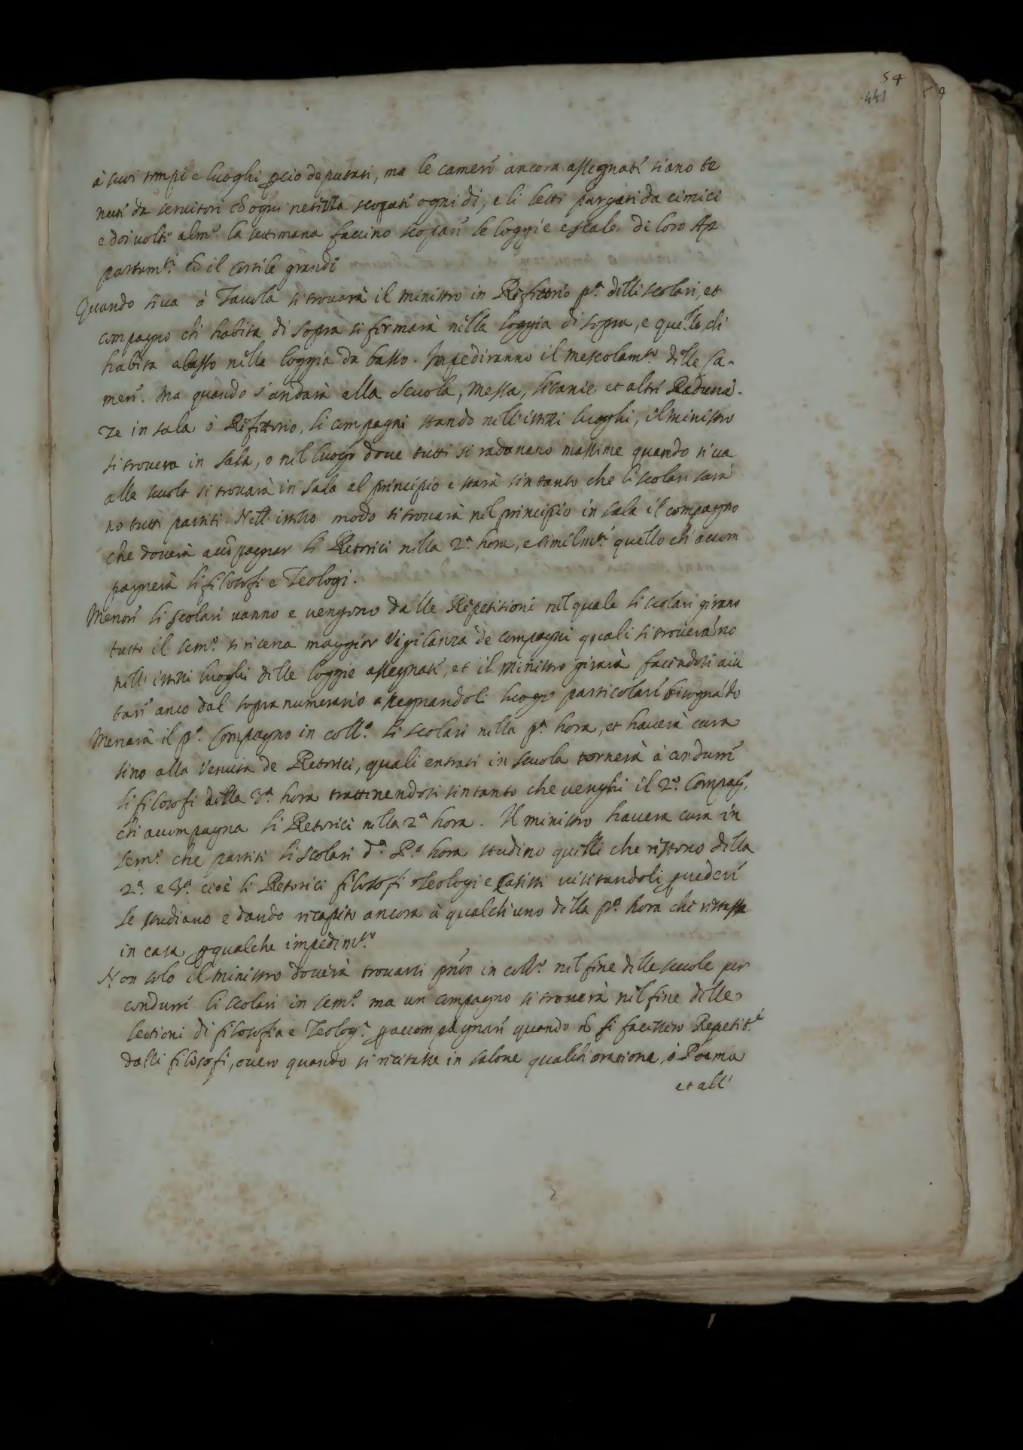 54
441
à suoi tempi e luoghi p ciò deputati, ma le cameri ancora assegnati siano te
nuti da servitori cō ogni netizza scopati ogni dì, e li letti purgati da cimici
e doi volti alm.º la settimana faccino scopari le loggie e scale di loro Ap
partam.ti et il cortile grandi
Quando si va à Tavola si trovarà il ministro in Refittorio p.ª dilli scolari, et
compagno chi habita di sopra si firmarà nilla loggia di sopra, e quello chi
habita abasso nilla loggia da basso. Impediranno il mescolam.to dille Ca-
meri. Ma quando s'andarà alla scuola, Messa, litanie et altri Reduna-
ze in sala ò Refittorio, li compagni stando nill' istissi luoghi, il ministro
si trovera in sala, o nil luogo dove tutti si radunano massime quando si va
alle scuole si trovarà in sala al principio e starà sintanto che li scolari sarā
no tutti partiti. Nell' istisso modo si trovarà nil principio in sala il compagno
che doverà accōpagnar li Retorici nilla 2.ª hora, e similm.te quello chi accom
pagnerà li filosofi e Teologi.
Mentri li scolari vanno e vengono dalle Repetitioni nil quale li scolari girano
tutto il sem.º si ricerca maggior Vigilanza de compagni quali si trovarāno
nilli istissi luoghi dille loggie assegnati, et il ministro girarà facendosi aiu
tari anco dal sopra numerario assegnandoli luogo particolari bisognādo
Menarà il p.º Compagno in coll.º li scolari nilla p.ª hora, et haverà cura
sino alla venuta de Retorici, quali entrati in scuola tornerà à condurri
li filosofi della 3.ª hora trattinendosi sintanto che venghi il 2.º Compag.º
chi accompagna li Retorici nilla 2.ª hora. Il ministro havera cura in
sem.º che partiti li scolari d.ª P.ª hora studino quelli che ristono dilla
2.ª e 3.ª cioè li Retorici filosofi Teologi e Casisti visitandoli p vederi
se studiano e dando ricapito ancora à qualchi uno della p.ª hora che ristasse
in casa p qualche impedim.to
Non solo il ministro doverà trovarsi pñto in coll.º nil fine dille scuole per
condurri li scolari in sem.º ma un compagno si troverà nil fine dille
lectioni di filosofia e Teolog.ª p accompagnari quando nō si facessero Repetit.i
dalli filosofi, overo quando si recitasse in salone qualchi oratione, ò Poema
et all'